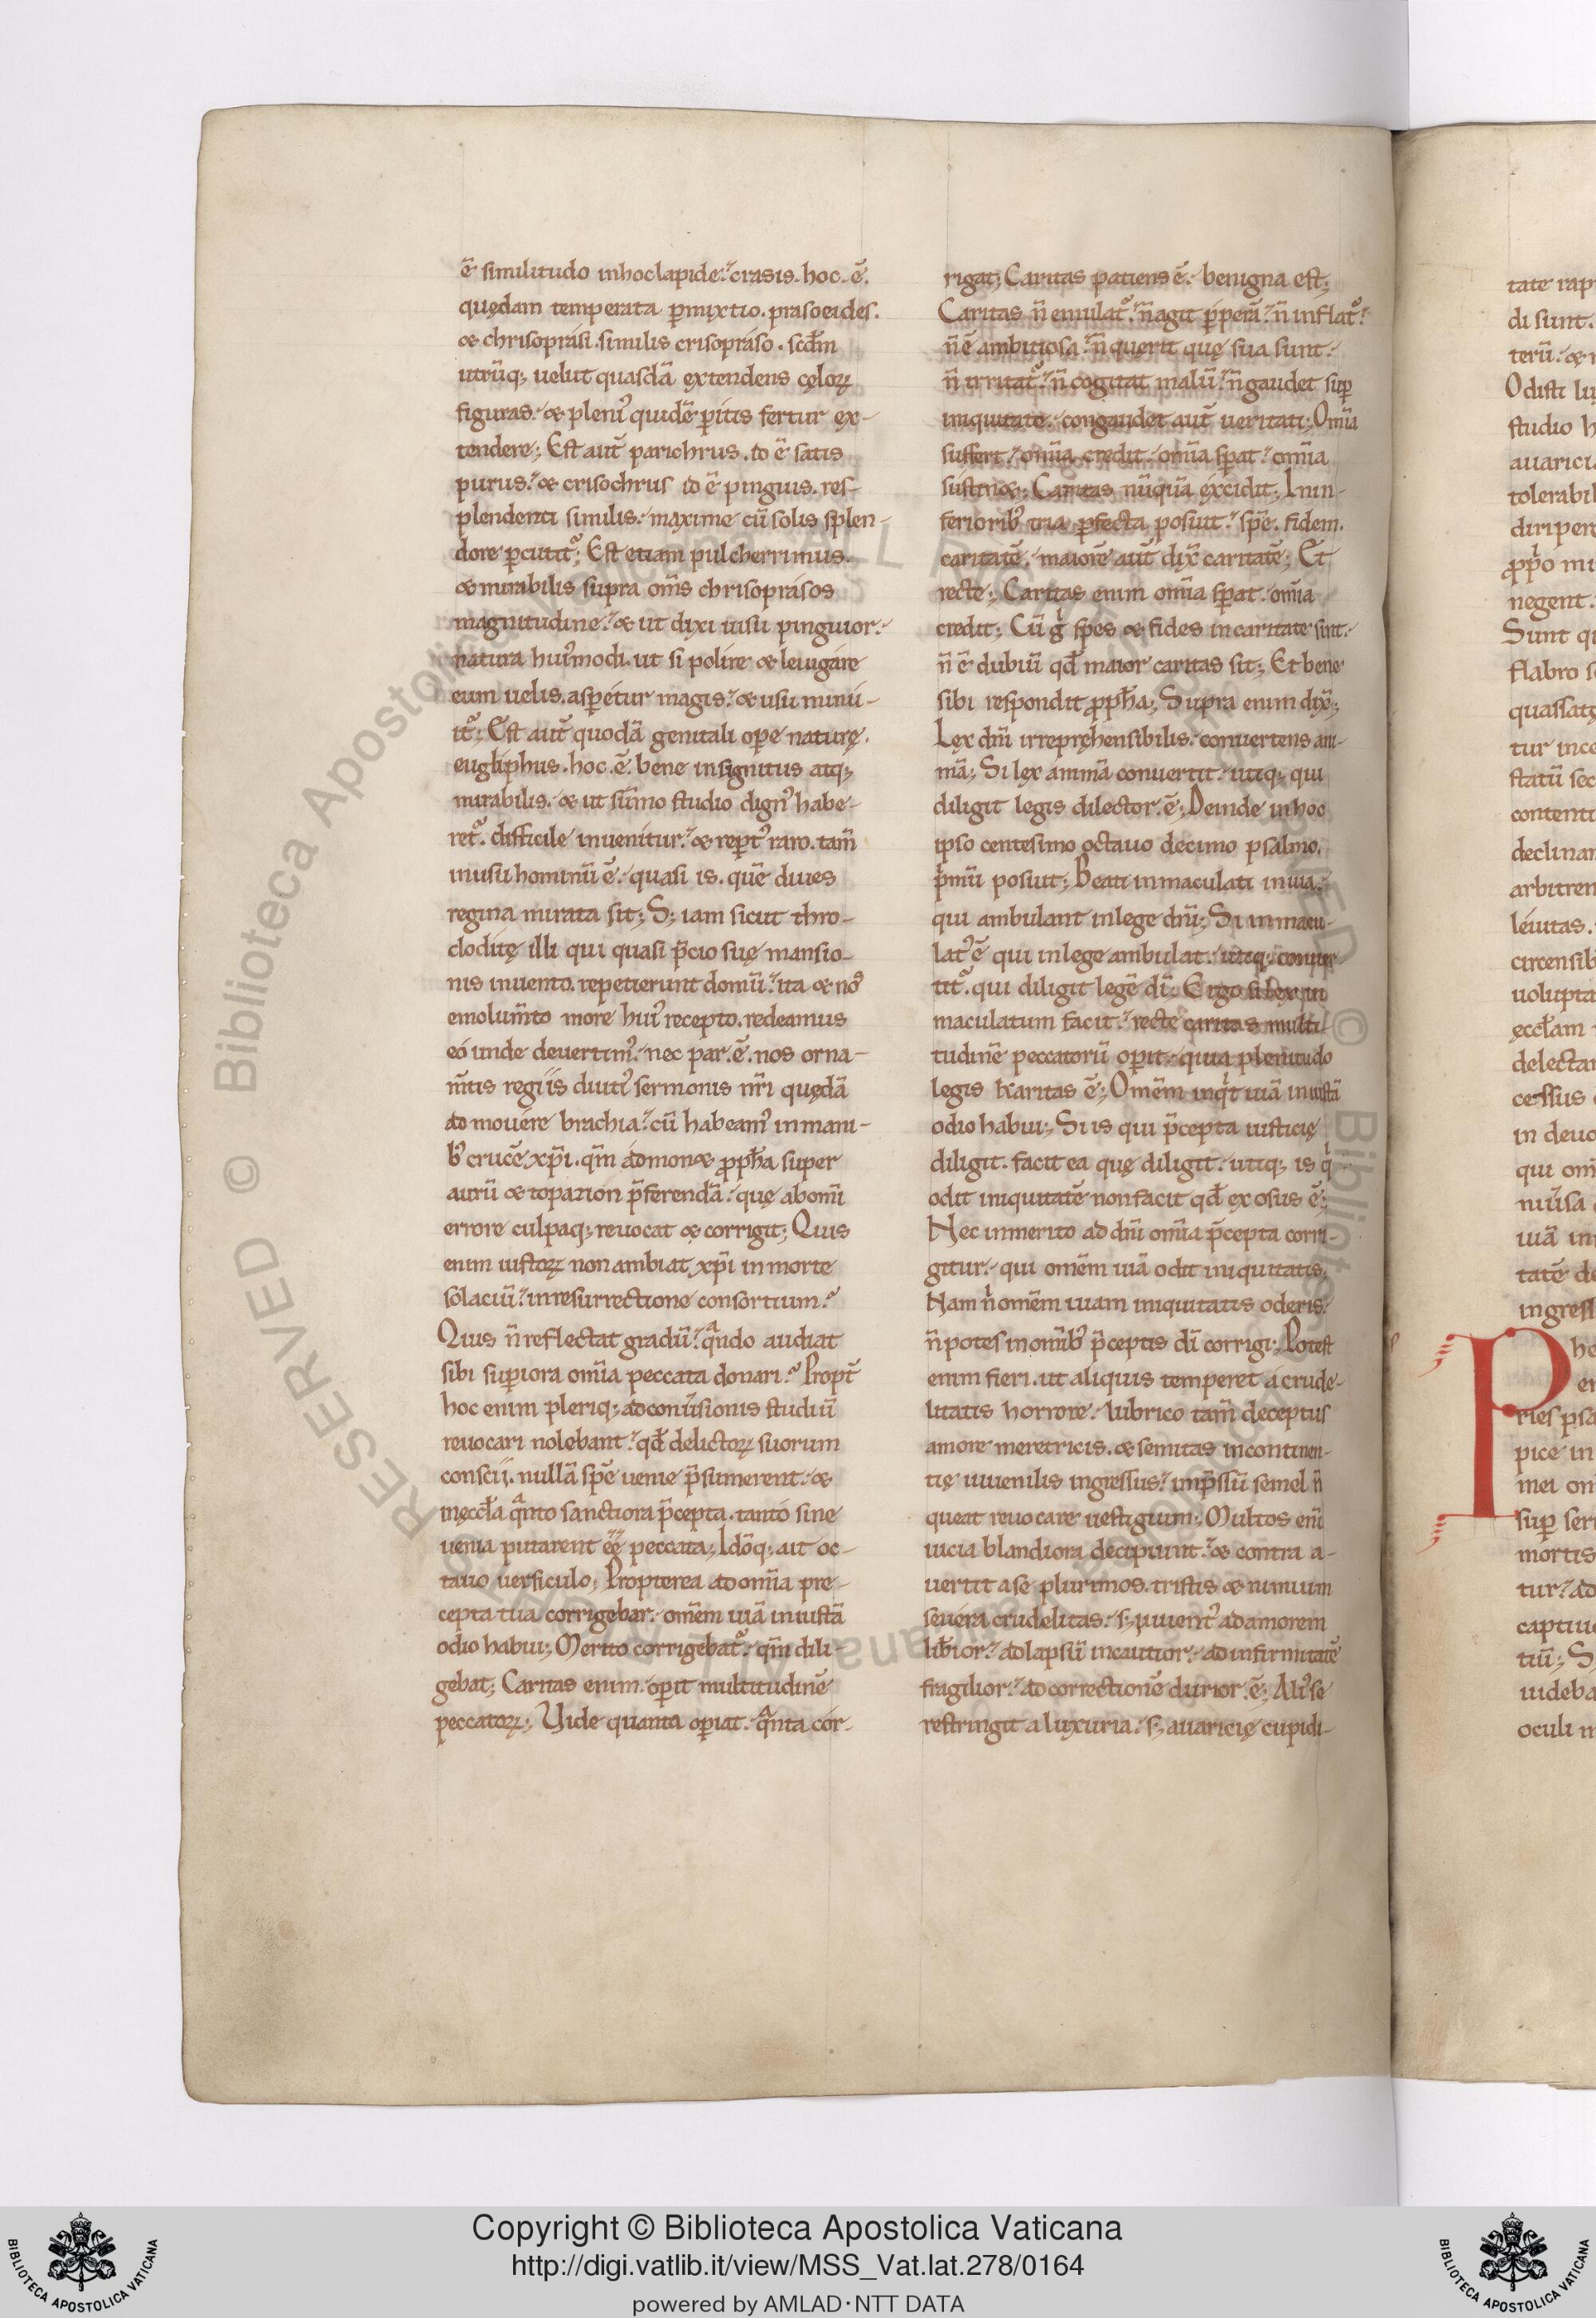 ē similitudo inhoclapide. crasis. hoc. ē.
quędam temperata p̱mixtio. prasoeides.
& chrisoprási. similis crisopráso. scd̄m
utrūq; uelut quasdā extendens cęloꝝ
figuras. & pleni᾽ quidē p̱itis fertur ex-
tendere; Est aut̄ parichrus. id ē satis
purus. & crisochrus id ē pinguis. res-
plendenti similis. maxime cū solis splen-
dore p̱cutit᷑; Est etiam pulcherrimus.
& mirabilis supra om̄s chrisoprásos
magnitudine. & ut dixi uisu pinguior.
natura hui᾽modi. ut si polire & leuigáre
eum uelis. asp̱étur magis. & usu minú-
it᷑; Est aut̄ quodā genitali op̱e naturę.
eugliphus. hoc. ē. bene insignitus atq;
mirabilis. & ut sūmo studio dign᾽ habe-
ret᷑. difficile inuenitur. & rep̱t᾽ raro. tam̄
inusu hominū ē. quasi is. quē diues
regina mirata sit; S; iam sicut thro-
cloditę illi qui quasi p̄cio suę mansio-
nis inuento. repetierunt domū. ita & nos
emolum̄to more hui᾽ recepto. redeamus
eó unde deuertim᾽. nec par. ē. nos orna-
m̄tis regiis diuiti᾽ sermonis nr̄i quędā
ad mouére brachia. cū habeam᾽ in mani-
b᾽ crucē xp̄i. qm̄ admon& ꝓpħa super
aurū & topazion p̄ferendā. quę abom̄i
errore culpaq; reuocat & corrigit; Quis
enim iustoꝝ non ambiat xp̄i in morte
sólaciū. inresurrectione consortium.
Quis n̄ reflectat gradū. qᵃndo audiat
sibi sup̱iora om̄ia peccata donari. Propt̄
hoc enim pleriq; adconu̅sionis studiū
reuocari nolebant. qđ delictoꝝ suorum
conscii. nullā spē uenie p̄sumerent. &
inęccƚa qᵃnto sanctiora p̄cepta. tantó sine
uenia putarent ēē peccata; Idōq; ait oc-
tauo uersiculo; Propterea ad om̄ia pre-
cepta tua corrigebar. omēm uiā iniustā
odio habui; Merito corrigebat᷑. qm̄ dili-
gebat; Caritas enim. op̱it multitudinē
peccatoꝝ; Uide quanta op̱iat. qᵃnta cor-
rigat; Caritas patiens ē. benigna est;
Caritas n̄ emulat᷑. n̄ agit p̱perā. n̄ inflat᷑.
n̄ ē ambitiosa. n̄ quęrit quę sua sunt.
n̄ irritat᷑. n̄ cogitat malū. n̄ gaudet sup̱
iniquitate. congaudet aut̄ ueritati; Om̄ia
suffert. om̄ia credit. om̄ia sp̱at. om̄ia
sustin&; Caritas nūquā excidit; Inin-
feriorib᾽ tria p̱fecta posuit. spē. fidem.
caritatē. maiorē aut̄ dix̄ caritatē; Et
recte; Caritas enim om̄ia sp̱at. om̄ia
credit; Cū gͥ spes & fides in caritate sint.
n̄ ē dubiū qđ maior caritas sit; Et bene
sibi respondit ꝓpħa; Supra enim dix̄;
Lęx dn̄i irrepręhensibilis. conuertens ani-
mā; Si lęx animā conuertit. utiq; qui
diligit legis dilector. ē; Deinde in hoc
ipso centesimo octauo decimo psalmo.
pͥmū posuit; Beati inmaculati in uia.
qui ambulant inlege dn̄i; Si inmacu-
lat᾽ ē qui inlege ambulat. utiq; conuer-
tit᷑. qui diligit legē dī; Ergo si lex in
maculatum facit. recte caritas multi
tudinē peccatorū op̱it. quia plenitudo
legis karitas ē; Omēm inqͥt uiā iniustā
odio habui; Si is qui p̄cepta iusticię
diligit. facit ea quę diligit. utiq; is qͥ
odit iniquitatē non facit qđ ex osus ē;
Nec inmerito ad dn̄i om̄ia p̄cepta corri-
gitur. qui omēm uiā odit iniquitatis;
Nam nͥ omēm uiam iniquitatis oderis.
n̄ potes inom̄ib᾽ p̄ceptis dī corrigi; Potest
enim fieri. ut aliquis temperet á crude-
litatis horrore. lubrico tam̄ deceptus
amore meretricis. & semitas incontinen-
tię iuuenilis ingressus. imp̄ssū semel n̄
queat reuocare uestigium; Multos eni̅
uicia blandiora decipiunt. & contra a-
uertit ase plurimos. tristis & nimium
seuéra crudelitas. s; iuuent᾽ ad amorem
liƀior. ad lapsū incautior. ad infirmitatē
fragilior. ad correctionē durior. ē; Ali᾽ se
restringit a luxuria. s; auaricię cupidi-
tate rap
di sunt.
terū. & n
Odisti lu
studio h
auarici
tolerabil
diripere
ꝓpͥo mi
negent.
Sunt qu
flabro s
quassatę
tur ince
statū sec
contenti
declinar
arbitren
léuitas.
circensib
uolupta
ęccƚam
delectar
cessus
in deuo
qui om
niūsa
uiā ini
tatē de
ingress
P he
er
ries psa
pice in
mei om
sup̱ ser
mortis
tur. ad
captiue
tiū; S
uideba
oculi m
RESERVED © Biblioteca Apostolica
Copyright © Biblioteca Apostolica Vaticana
http://digi.vatlib.it/view/MSS_Vat.lat.278/0164
powered by AMLAD·NTT DATA
BIBLIOTECA APOSTOLICA VATICANA
BIBLIOTECA APOSTOLICA VATICANA